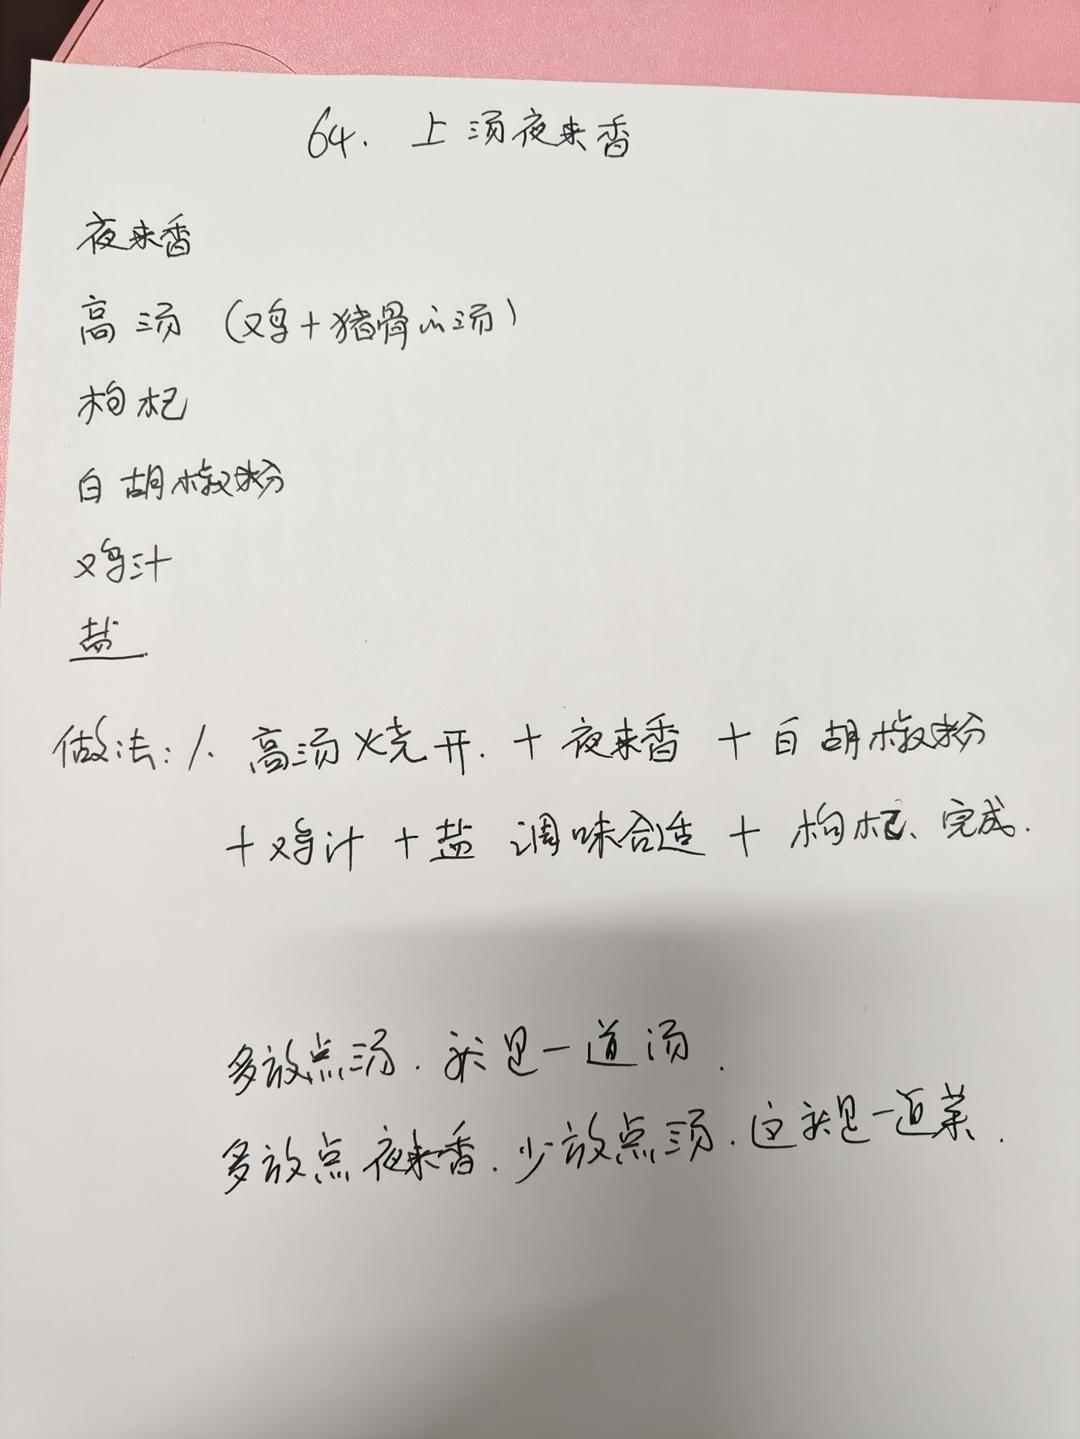 64. 上汤夜来香
夜来香
高汤 (鸡+猪骨の汤)
枸杞
白胡椒粉
鸡汁
盐
做法: 1. 高汤烧开. + 夜来香 + 白胡椒粉
+ 鸡汁 + 盐 调味合适 + 枸杞、完成.
多放点汤. 就是一道汤.
多放点夜来香. 少放点汤. 这就是一道菜.